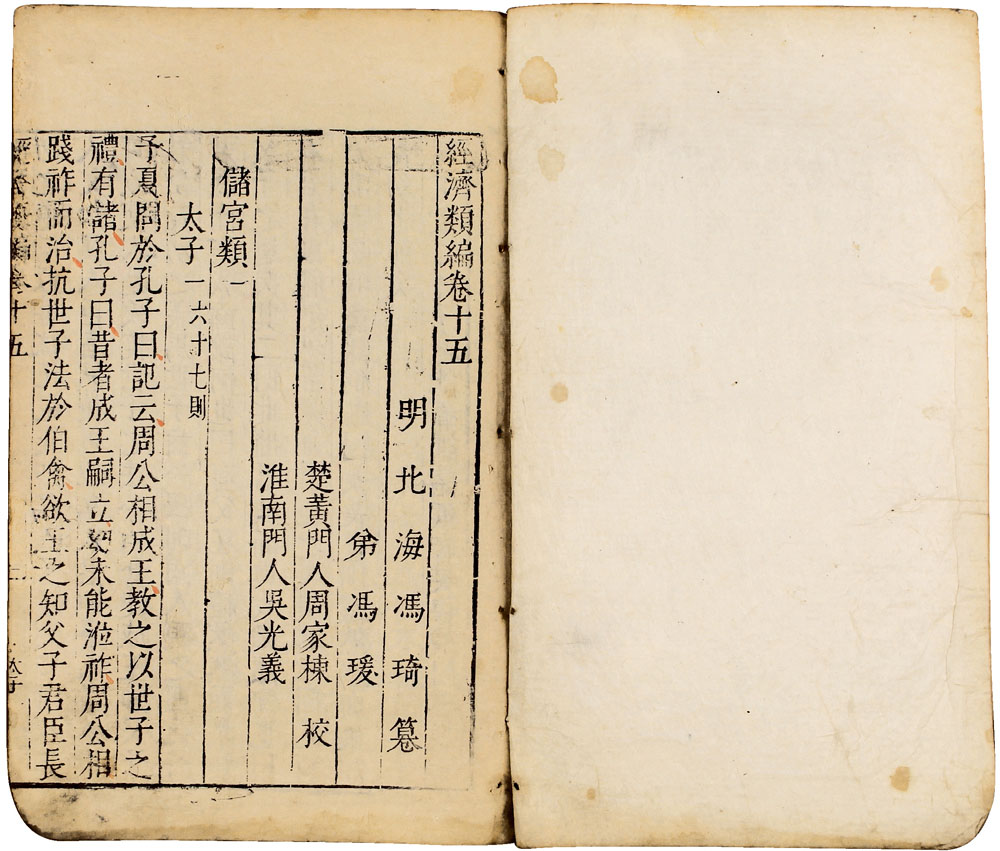 經濟類編卷十五
明北海馮琦纂
弟馮瑗
楚黃門人周家棟校
淮南門人吳光義
儲宮類一
太子一六十七則
子夏問於孔子曰記云周公相成王教之以世子之
禮有諸孔子曰昔者成王嗣立幼未能涖祚周公相
踐祚而治抗世子法於伯禽欲王之知父子君臣長
經濟類編卷十五